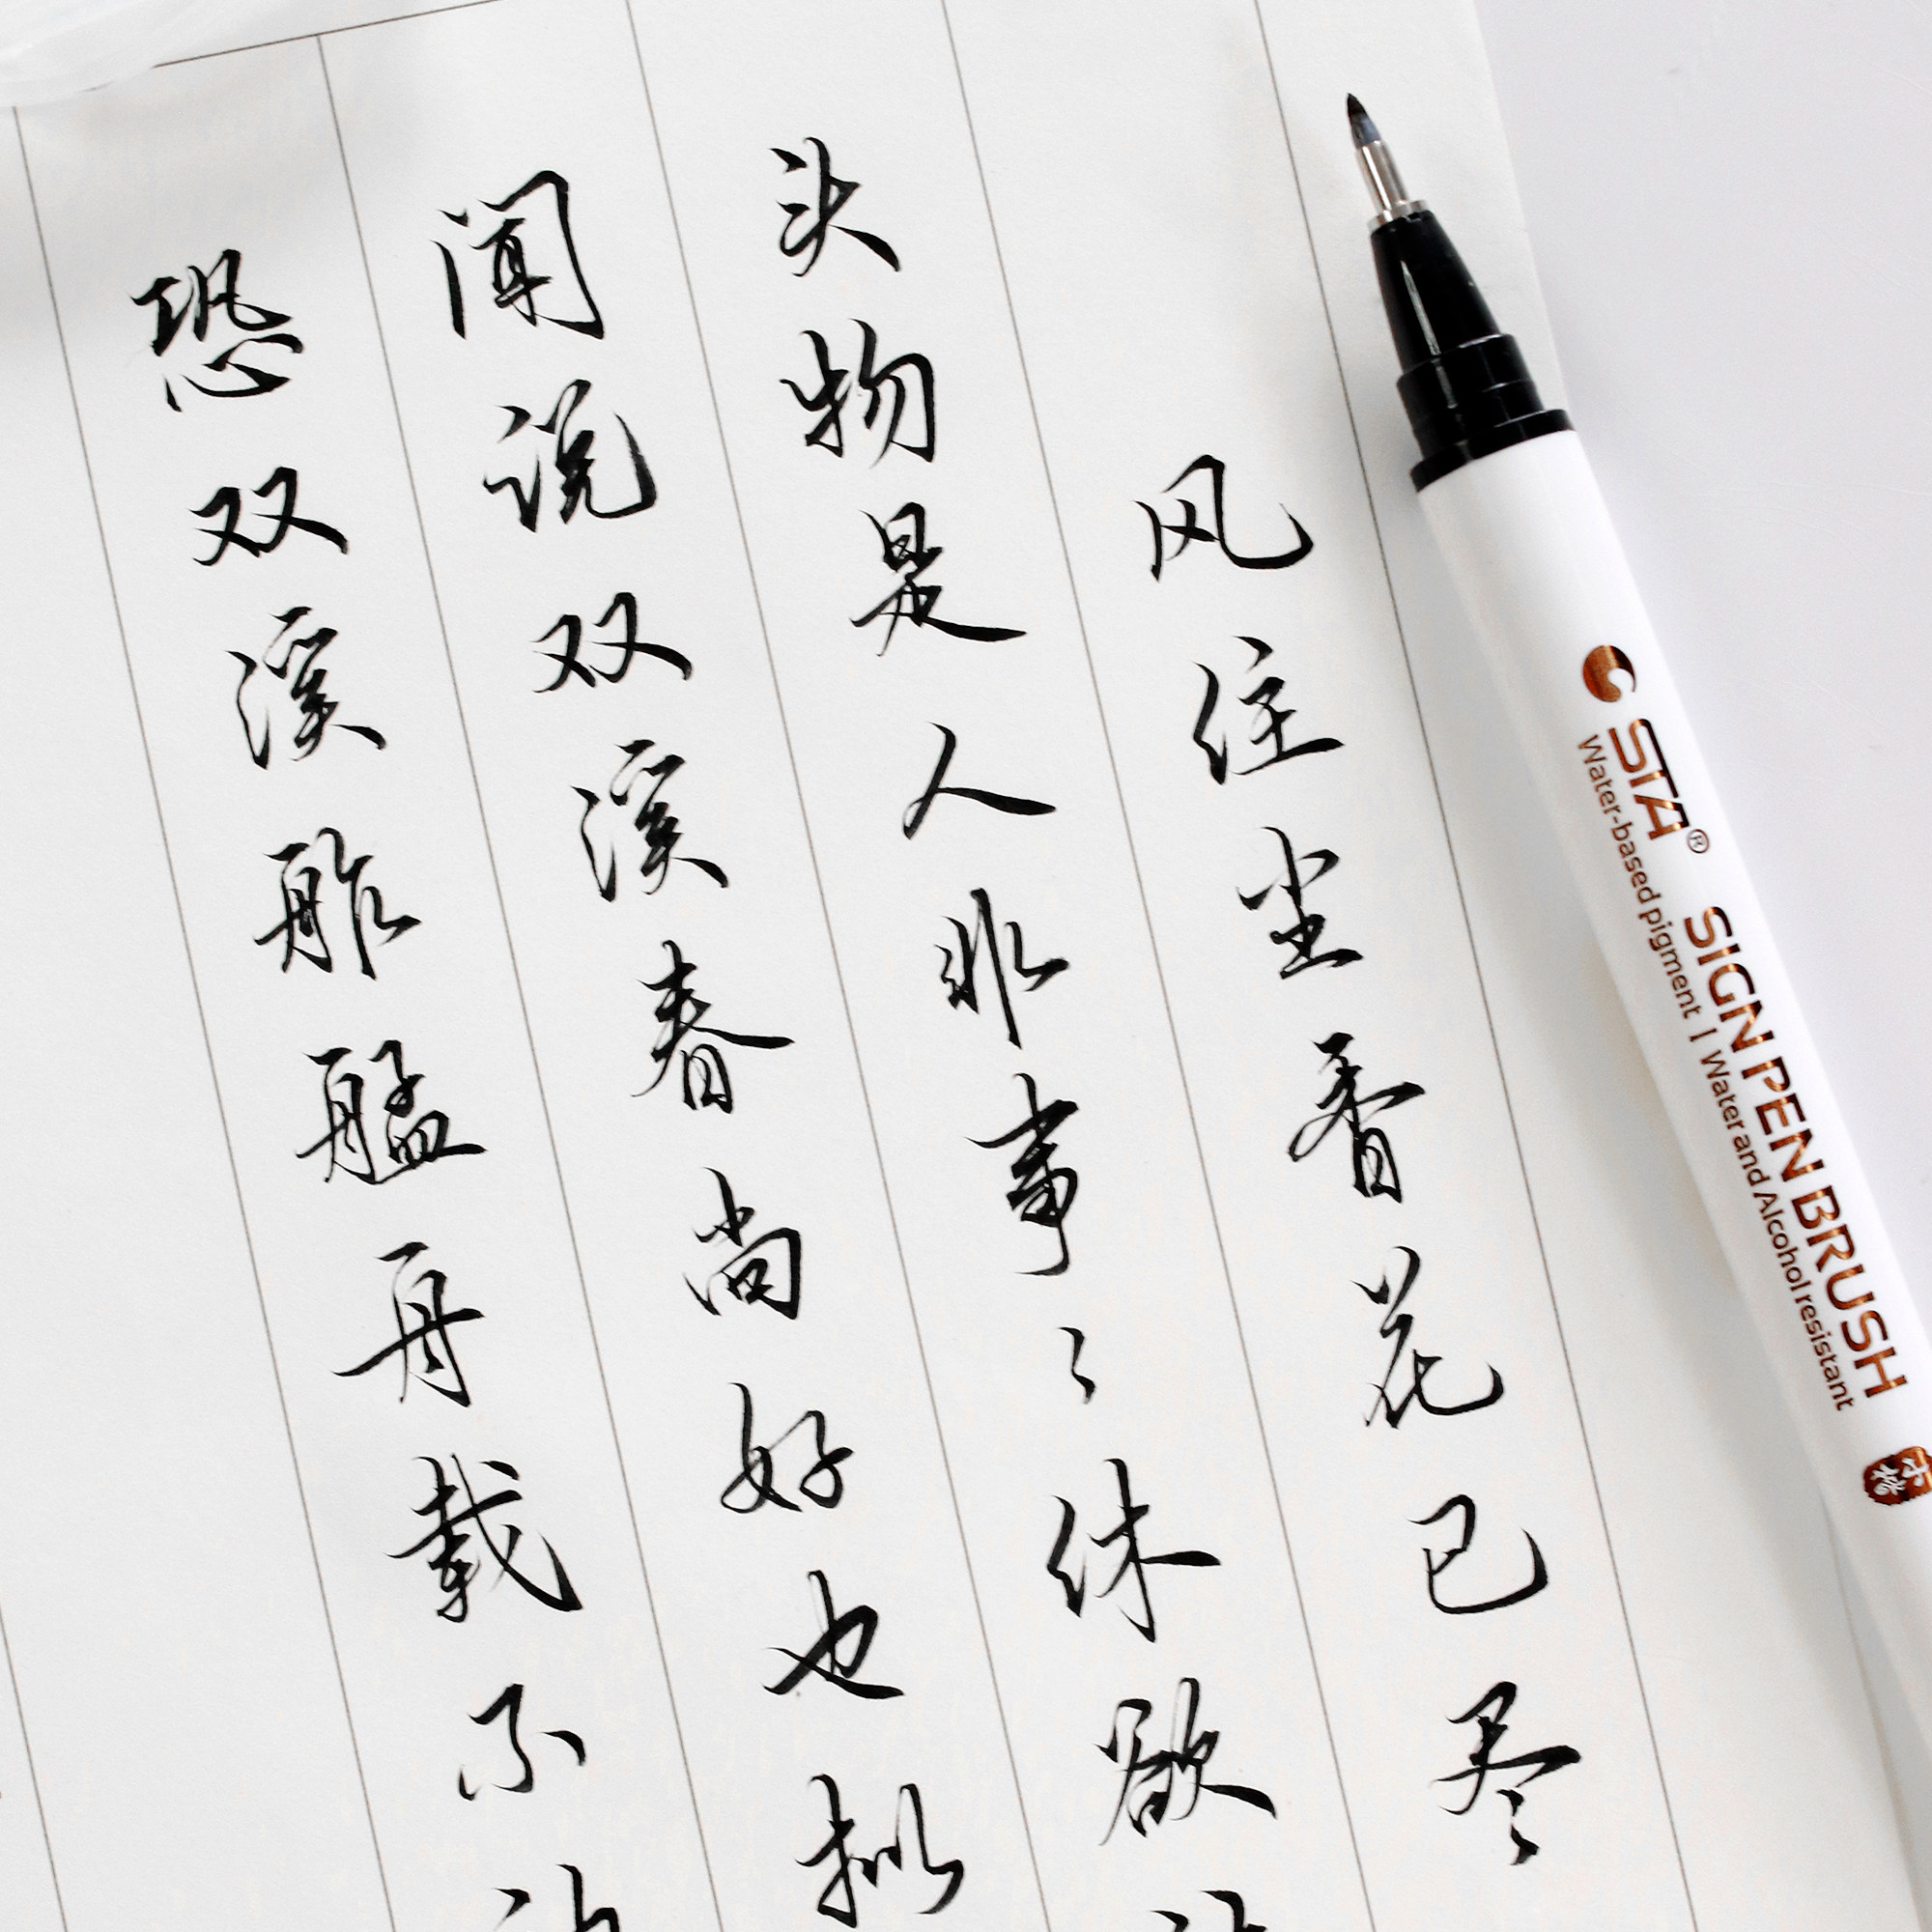 风住尘香花已尽
头物是人非事〻休欲
闻说双溪春尚好也拟
恐双溪舴艋舟载不
STA® SIGN PEN BRUSH
Water-based pigment | Water and Alcohol resistant